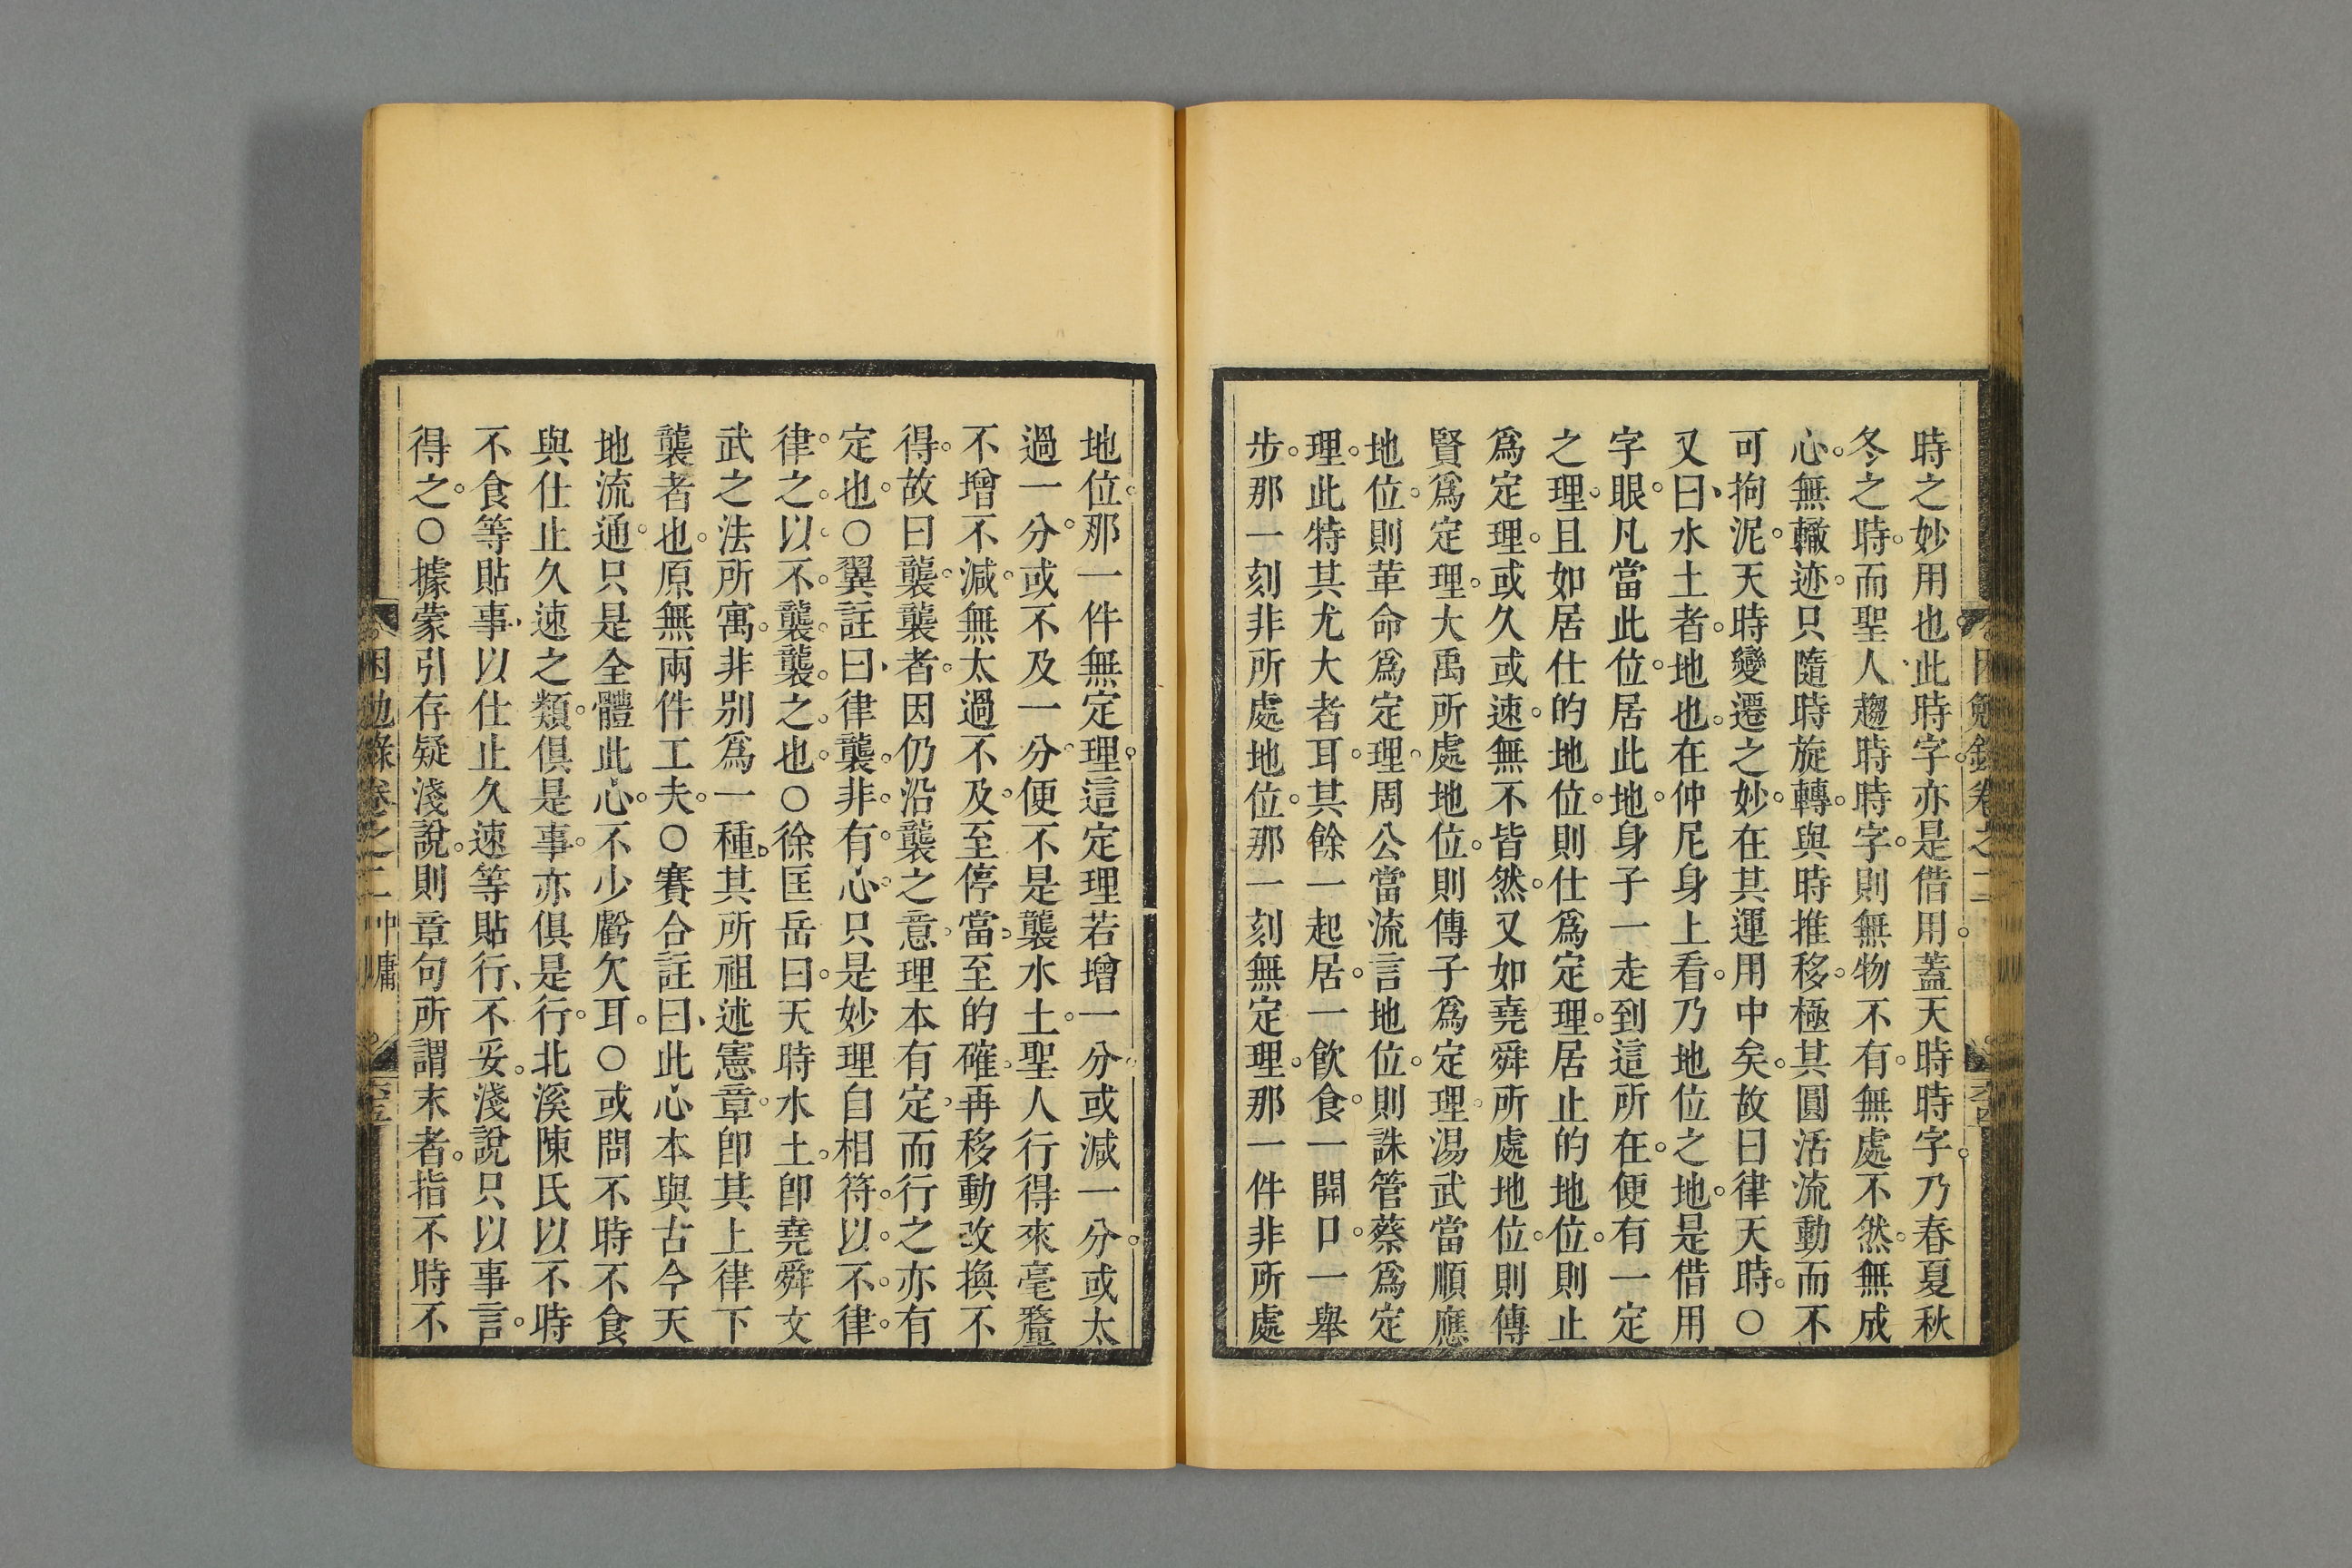 時之妙用也此時字亦是借用蓋天時時字乃春夏秋
冬之時而聖人趨時時字則無物不有無處不然無成
心無轍迹只隨時旋轉與時推移極其圓活流動而不
可拘泥天時變遷之妙在其運用中矣故曰律天時○
又曰水土者地也在仲尼身上看乃地位之地是借用
字眼凡當此位居此地身子一走到這所在便有一定
之理且如居仕的地位則仕爲定理居止的地位則止
爲定理或久或速無不皆然又如堯舜所處地位則傳
賢爲定理大禹所處地位則傳子爲定理湯武當順應
地位則革命爲定理周公當流言地位則誅管蔡爲定
理此特其尤大者耳其餘一起居一飲食一開口一舉
步那一刻非所處地位那一刻無定理那一件非所處
地位那一件無定理這定理若增一分或減一分或太
過一分或不及一分便不是襲水土聖人行得來毫釐
不增不減無太過不及至停當至的確再移動改換不
得故曰襲襲者因仍沿襲之意理本有定而行之亦有
定也○翼註曰律襲非有心只是妙理自相符以不律
律之以不襲襲之也○徐匡岳曰天時水土卽堯舜文
武之法所寓非别爲一種其所祖述憲章卽其上律下
襲者也原無兩件工夫○賽合註曰此心本與古今天
地流通只是全體此心不少虧欠耳○或問不時不食
與仕止久速之類俱是事亦俱是行北溪陳氏以不時
不食等貼事以仕止久速等貼行不妥淺說只以事言
得之○據蒙引存疑淺說則章句所謂末者指不時不
困勉錄卷之二 中庸